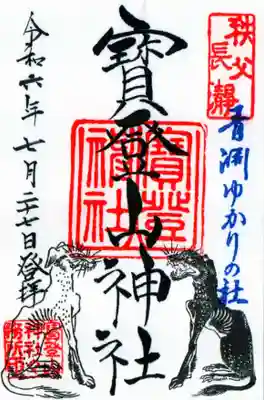 秩父
長瀞
青淵ゆかりの社
寶登山神社
寶登
神社
令和六年七月二十七日登拝